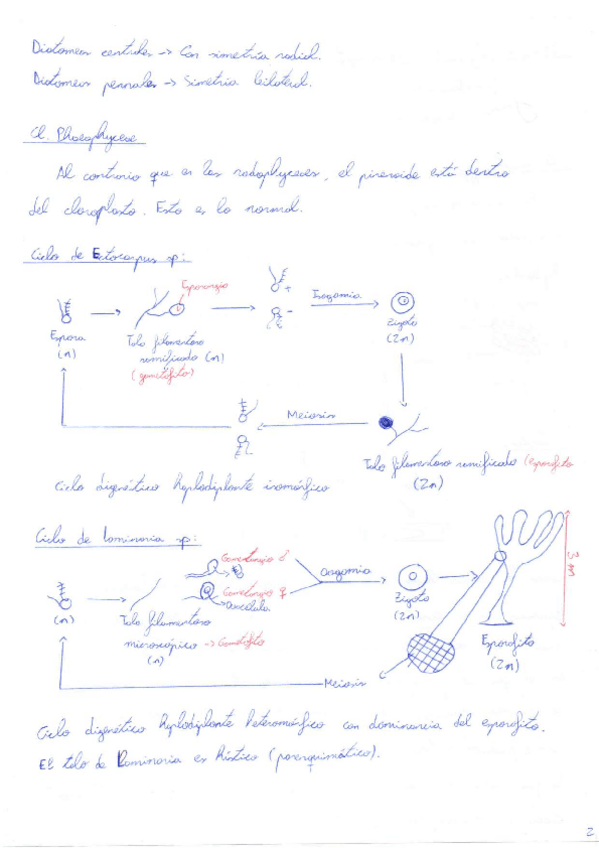 Diatomeas centrales -> Con simetría radial.
Diatomeas pennales -> Simetría bilateral.
Cl. Phaeophyceae
Al contrario que en las rodophyceaes, el pirenoide está dentro
del cloroplasto. Esto es lo normal.
Ciclo de Ectocarpus sp:
Espora
(n)
Esporangio
Talo filamentoso
ramificado (n)
(gametofito)
+
-
Isogamia
Zigoto
(2n)
Meiosis
Talo filamentoso ramificado (esporofito
(2n)
Ciclo digenético haplodiplonte isomórfico
Ciclo de Laminaria sp:
(n)
Talo filamentoso
microscópico -> Gametofito
(n)
Gametangio ♂
Gametangio ♀
Oocélula
Oogamia
Zigoto
(2n)
3 m
Esporofito
(2n)
Meiosis
Ciclo digenético haplodiplonte heteromórfico con dominancia del esporofito.
El talo de Laminaria es hístico (parenquimático).
2